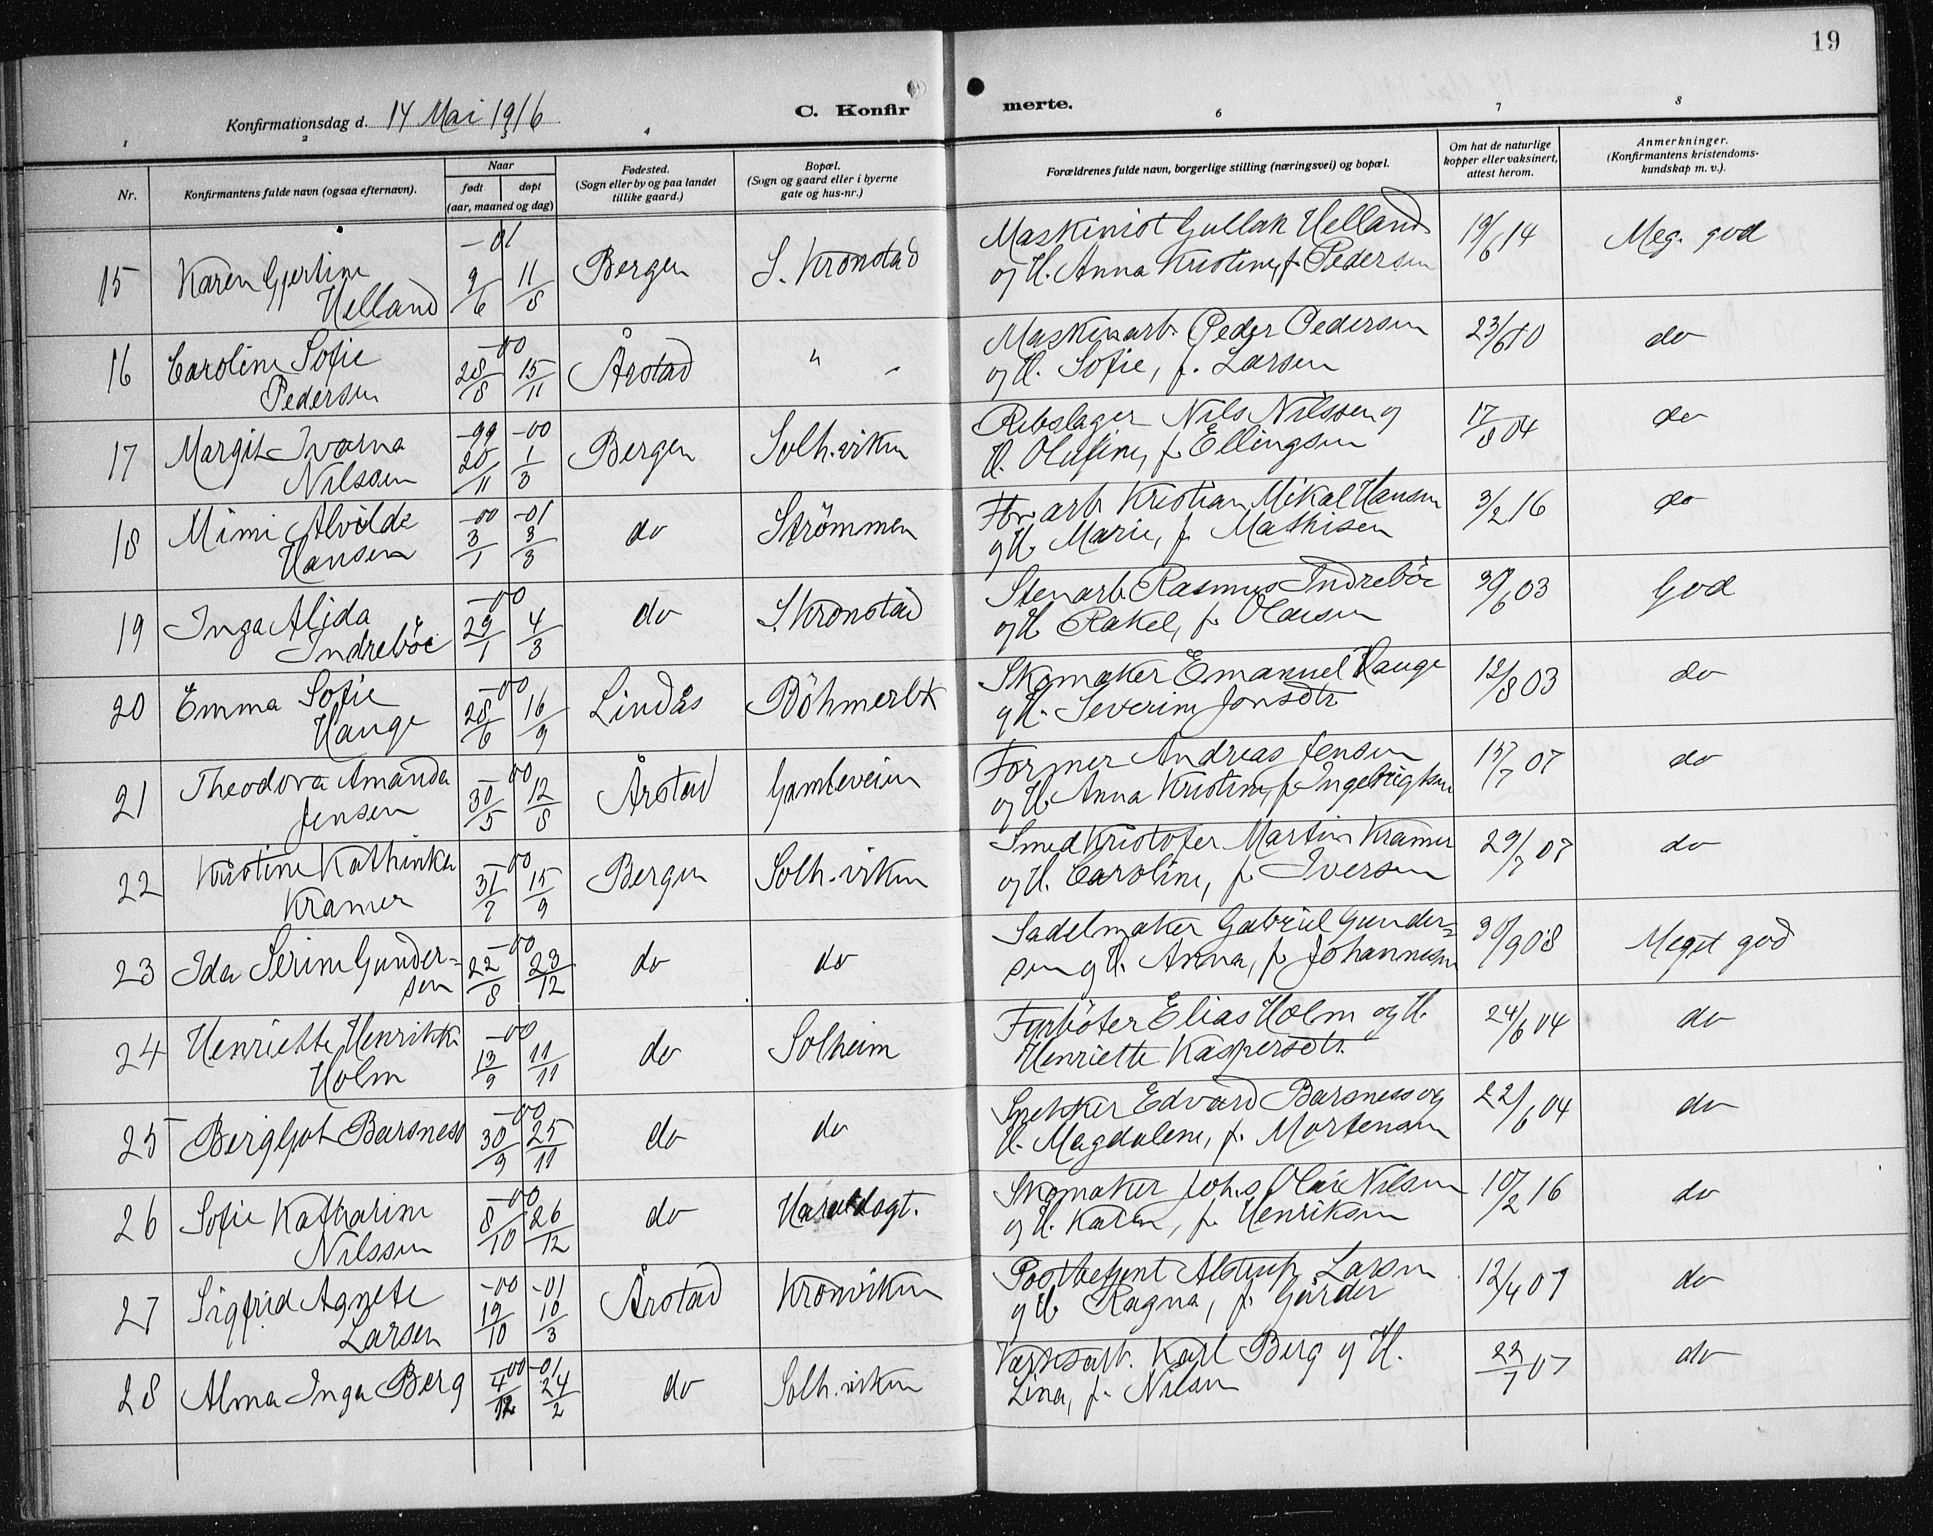 19
Konfirmationsdag d. 14 Mai 1916
C. Konfir
merte.
1 2 3 4
6 7 8
Nr.
Konfirmantens fulde navn (ogsaa efternavn).
Naar
født døpt
(aar, maaned og dag)
Fødested.
(Sogn eller by og paa landet
tillike gaard.)
Bopæl.
(Sogn og gaard eller i byerne
gate og hus-nr.)
Forældrenes fulde navn, borgerlige stilling (næringsvei) og bopæl.
Om hat de naturlige
kopper eller vaksinert,
attest herom.
Anmerkninger.
(Konfirmantens kristendoms-
kundskap m. v.).
15 Karen Gjertine Helland -01 9/6 11/8 Bergen S. Kronstad
Maskinist Gullak Helland 19/6 14 Meg. god
og H. Anna Kristine, f. Pedersen
16 Caroline Sofie Pedersen -00 28/8 15/11 Årstad " -
Maskinarb. Peder Pedersen 23/6 10 do
og H. Sofie, f. Larsen
17 Margit Ivarna Nilssen -99 20/11 -00 1/3 Bergen Solh.viken
Rebslager Nils Nilssen og 17/8 04 do
H. Olufine, f. Ellingsen
18 Mimi Alvilde Hansen -00 3/1 -01 3/3 do Strömmen
arb. Kristian Mikal Hansen 3/2 16 do
og H. Marie, f. Mathisen
19 Inga Alida Indreböe -00 29/1 4/3 do S. Kronstad
Stenarb. Rasmus Indreböe 30/6 03 God
og H. Rakel, f. Olausen
20 Emma Sofie Hauge -00 28/6 16/9 Lindås Böhmerbk
Skomaker Emanuel Hauge 12/8 03 do
og H. Severine Jonsdtr.
21 Theodora Amanda Jensen -00 30/5 12/8 Årstad Gamleveien
Former Andreas Jensen 15/7 07 do
og H. Anna Kristine, f. Ingebrigtsen
22 Kristine Kathinka Kramer -00 31/7 15/9 Bergen Solh.viken
Smed Kristofer Martin Kramer 29/7 07 do
og H. Caroline, f. Iversen
23 Ida Serine Gundersen -00 22/8 23/12 do do
Sadelmaker Gabriel Gunder= 30/9 08 Meget god
sen og H. Anna, f. Johannesen
24 Henriette Henrikke Holm -00 12/9 11/11 do Solheim
Fyrböter Elias Holm og H. 24/6 04 do
Henriette Kaspersdtr.
25 Bergljot Barsness -00 30/9 25/11 do do
Snekker Edvard Barsness og 22/6 04 do
H. Magdalene, f. Mortensen
26 Sofie Katharine Nilssen -00 8/10 26/12 do Haraldsgt.
Skomaker Johs Olai Nilsen 10/2 16 do
og H. Karen, f. Henriksen
27 Sigfrid Agnete Larsen -00 19/10 -01 10/3 Årstad Kronviken
Postbetjent Alstrup Larsen 12/4 07 do
og H. Ragna, f. Gårder
28 Alma Inga Berg -00 4/12 -01 24/2 do Solh.viken
Værksarb. Karl Berg og H. 22/7 07 do
Lina, f. Nilsen